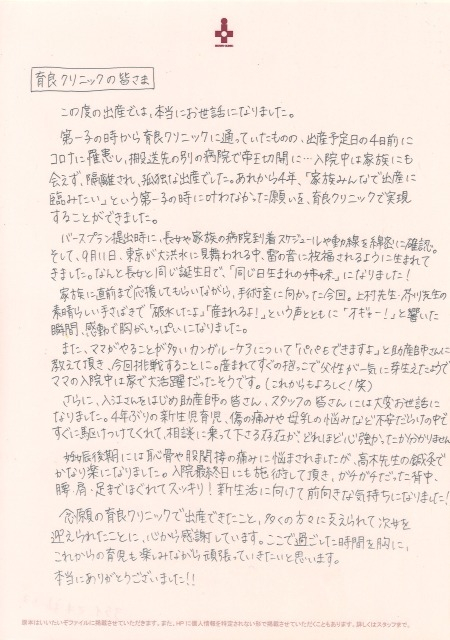 育良クリニックの皆さま
この度の出産では、本当にお世話になりました。
第一子の時から育良クリニックに通っていたものの、出産予定日の4日前に
コロナに罹患し、搬送先の別の病院で帝王切開に…入院中は家族にも
会えず、隔離され、孤独な出産でした。あれから4年、「家族みんなで出産に
臨みたい」という第一子の時に叶わなかった願いを、育良クリニックで実現
することができました。
バースプラン提出時に、長女や家族の病院到着スケジュールや動線を綿密に確認。
そして、9月11日、東京が大洪水に見舞われる中、雷の音に祝福されるように生まれて
きました。なんと長女と同じ誕生日で、「同じ日生まれの姉妹」になりました!
家族に直前まで応援してもらいながら、手術室に向かった今回。上村先生・芥川先生の
素晴らしい手さばきで「破水したよ」「産まれるよ!」という声とともに「オギャー!」と響いた
瞬間、感動で胸がいっぱいになりました。
また、ママがやることが多いカンガルーケアについて「パパもできますよ」と助産師さんに
教えて頂き、今回挑戦することに。産まれてすぐの抱っこで父性が一気に芽生えたようで
ママの入院中は家で大活躍だったそうです。(これからもよろしく!笑)
さらに、入江さんをはじめ助産師の皆さん、スタッフの皆さんには大変お世話に
なりました。4年ぶりの新生児育児、傷の痛みや母乳の悩みなど不安だらけの中で
すぐに駆けつけてくれて、相談に乗って下さる存在が、どれほど心強かったか分かりません
妊娠後期には恥骨や股関節の痛みに悩まされましたが、高木先生の鍼灸で
かなり楽になりました。入院最終日にも施術して頂き、ガチガチだった背中、
腰・肩・足までほぐれてスッキリ!新生活に向けて前向きな気持ちになりました!
念願の育良クリニックで出産できたこと、多くの方々に支えられて次女を
迎えられたことに、心から感謝しています。ここで過ごした時間を胸に、
これからの育児も楽しみながら頑張っていきたいと思います。
本当にありがとうございました!!
原本はいいたいそファイルに掲載させていただきます。また、HPに個人情報を特定されない形で掲載させていただくこともあります。詳しくはスタッフまで。